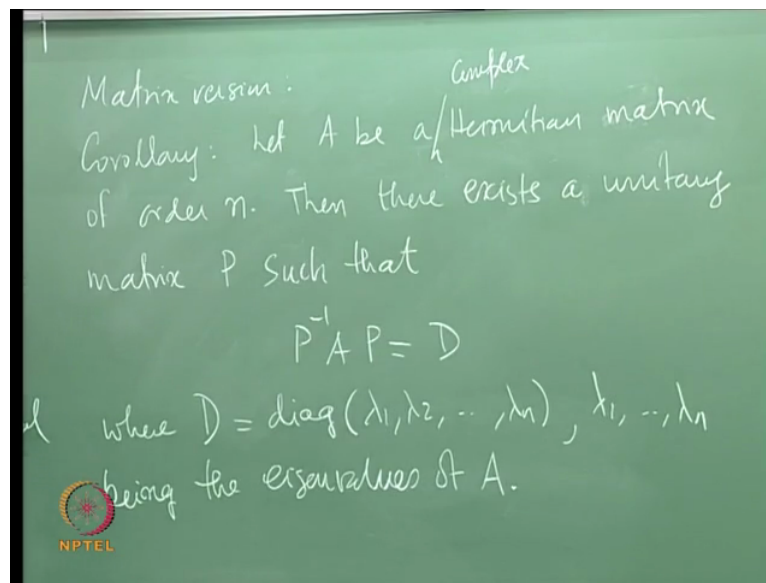 Matrix version:
complex
Corollary: Let A be a Hermitian matrix
of order n. Then there exists a unitary
matrix P such that
P⁻¹AP = D
where D = diag(λ1, λ2, .., λn), λ1, .., λn
being the eigenvalues of A.
NPTEL